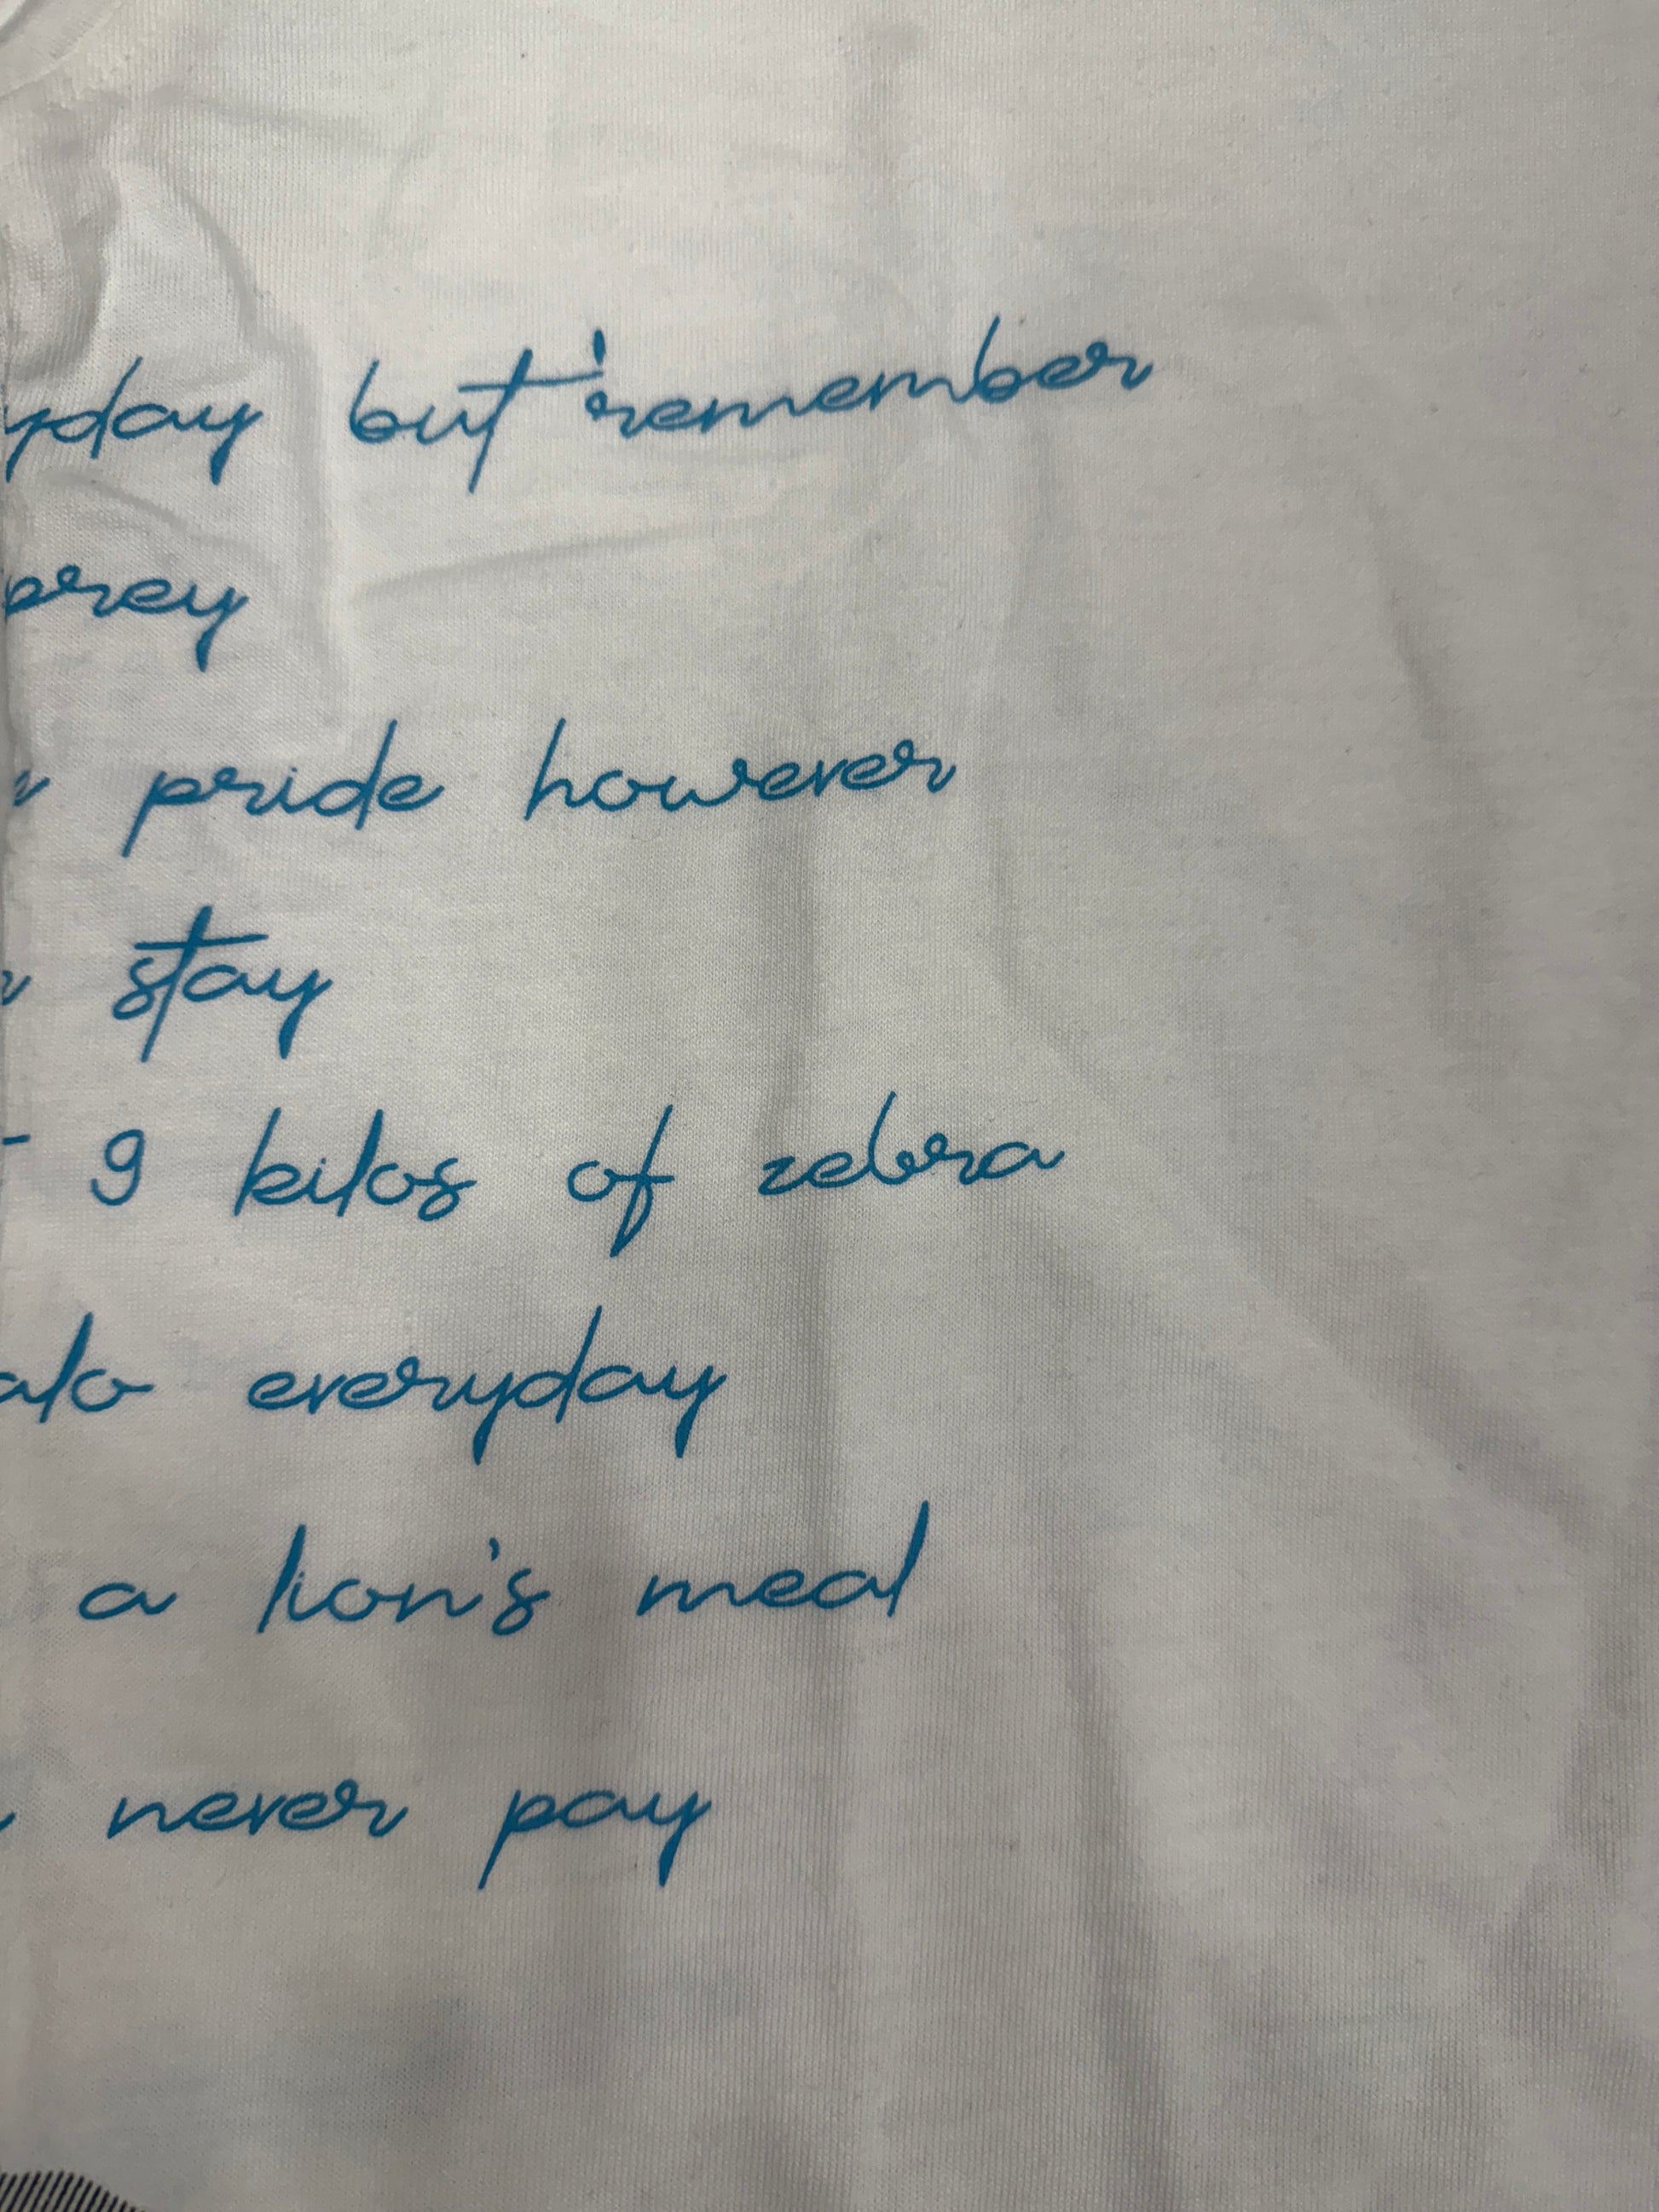 yday but 'remember
prey
pride however
stay
- 9 kilos of zebra
alo everyday
a lion's meal
never pay